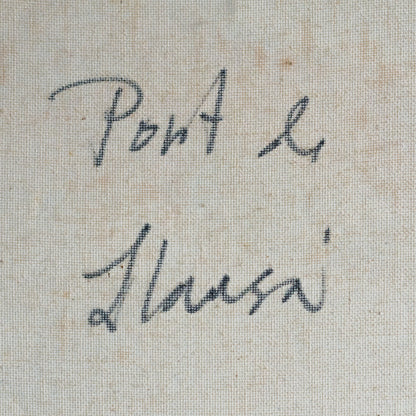 Port de
Llansá